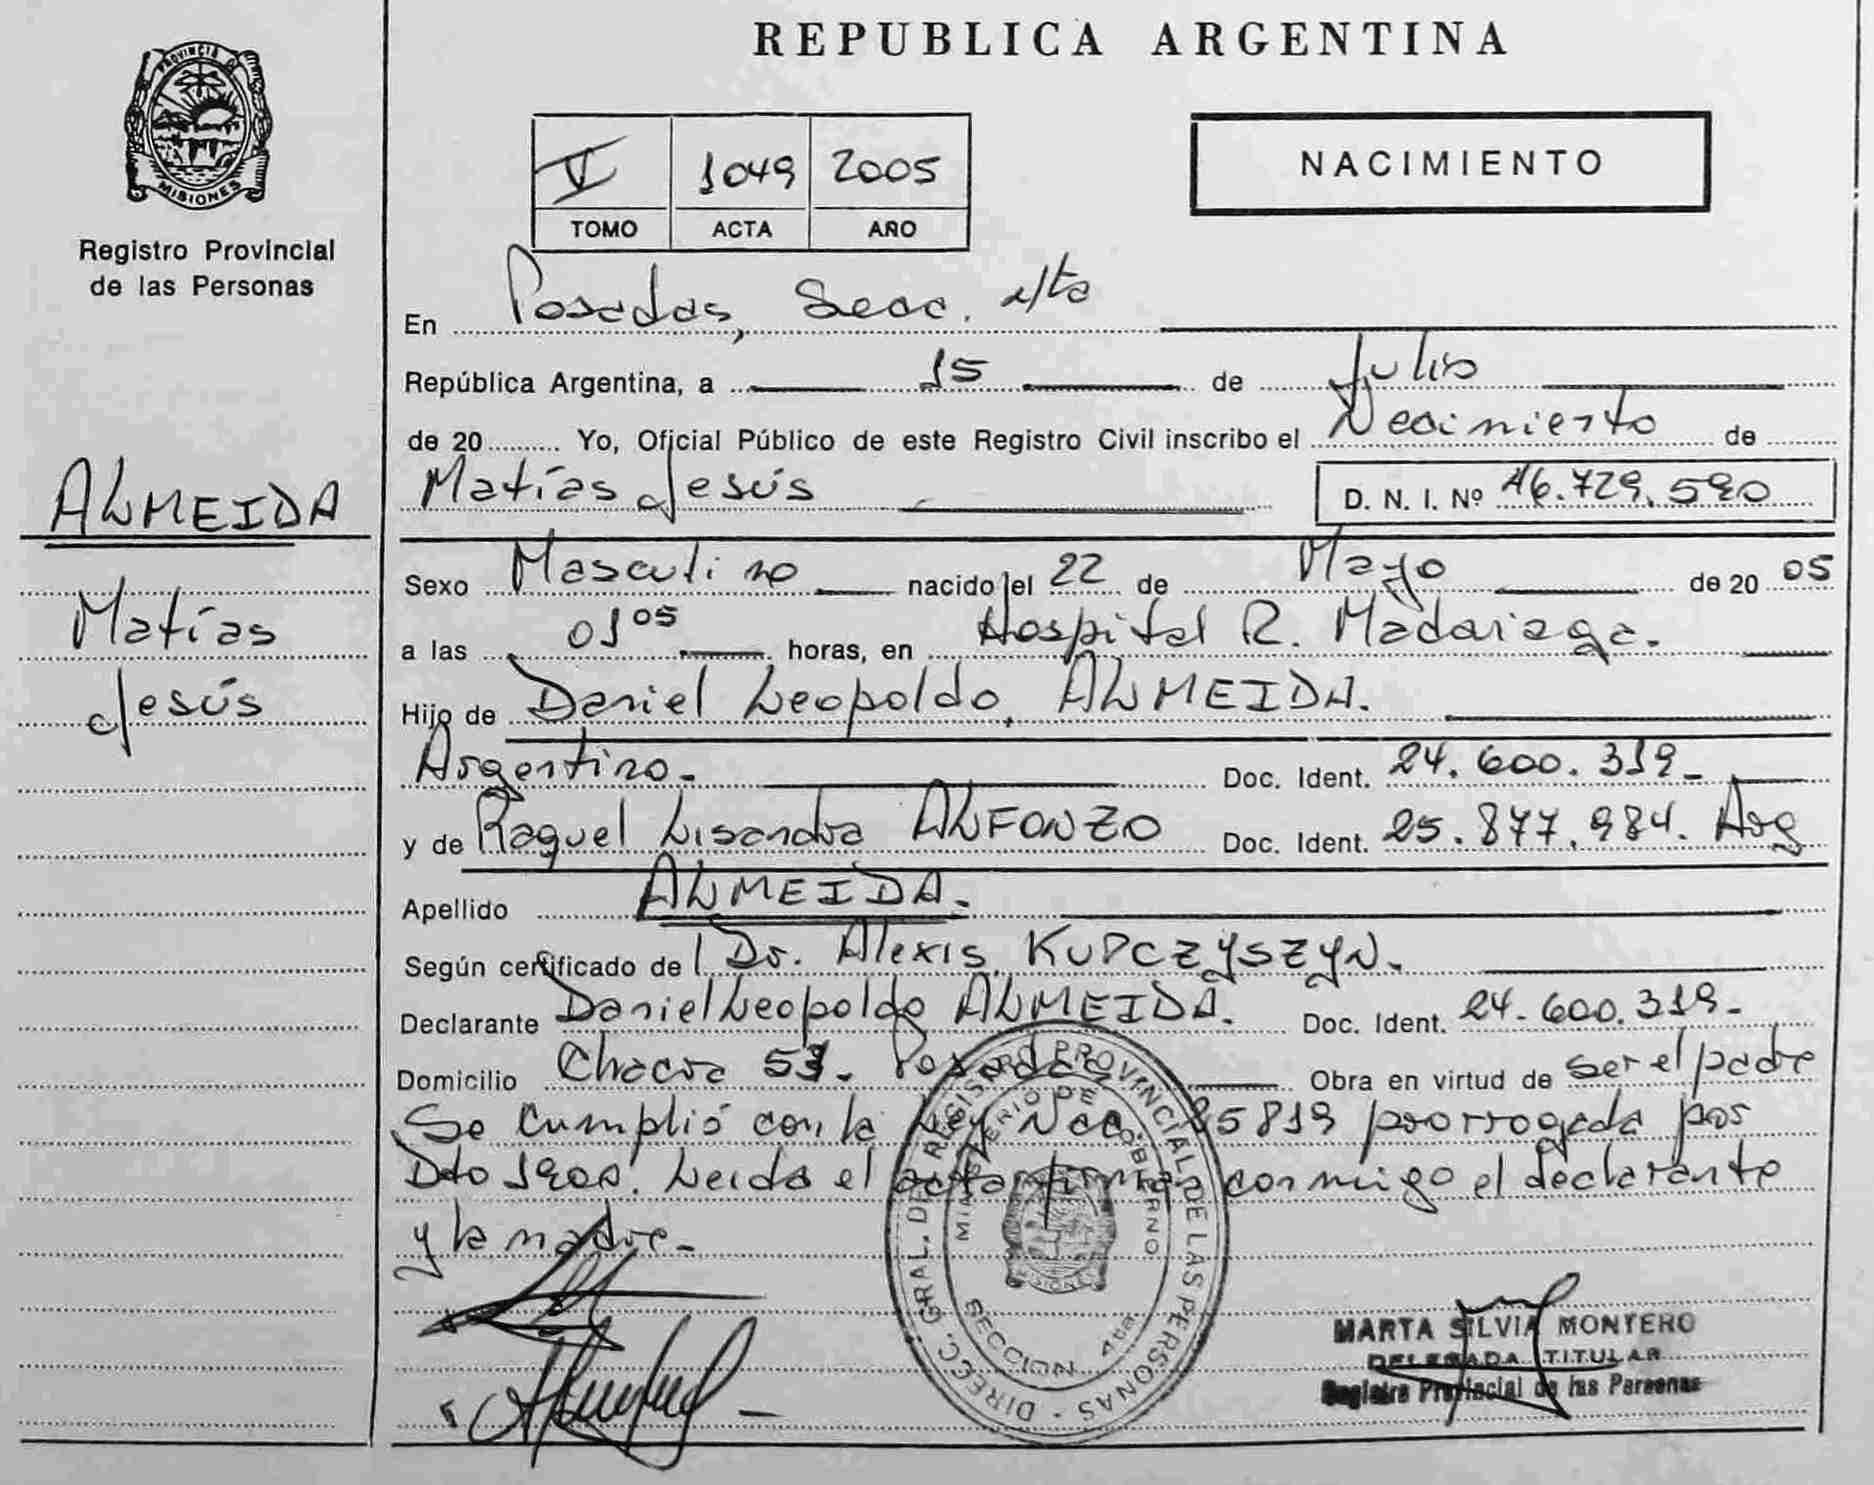 REPUBLICA ARGENTINA
PROVINCIA DE
MISIONES
Registro Provincial
de las Personas
V 1049 2005
TOMO ACTA AÑO
NACIMIENTO
ALMEIDA
Matías
Jesús
En Posadas, Secc. 4ta
República Argentina, a 15 de Julio
de 20 Yo, Oficial Público de este Registro Civil inscribo el Nacimiento de
Matías Jesús D. N. I. Nº 46.729.590
Sexo Masculino nacido el 22 de Mayo de 20 05
a las 01 05 horas, en Hospital R. Madariaga.
Hijo de Daniel Leopoldo, ALMEIDA.
Argentino. Doc. Ident. 24.600.319
y de Raquel Lisandra ALFONZO Doc. Ident. 25.877.984. Arg
Apellido ALMEIDA.
Según certificado de Dr. Alexis KUPCZYSZYN.
Declarante Daniel Leopoldo ALMEIDA. Doc. Ident. 24.600.319
Domicilio Chacra 53. Posadas Obra en virtud de ser el padre
Se cumplió con la Ley Nac. 25819 prorrogada por
Dto 1900. Leída el acta firman conmigo el declarante
y la madre
DIRECC. GRAL. DE REGISTRO PROVINCIAL DE LAS PERSONAS
MINISTERIO DE GOBIERNO
MISIONES
SECCION 4ta.
MARTA SILVIA MONTERO
DELEGADA TITULAR
Registro Provincial de las Personas